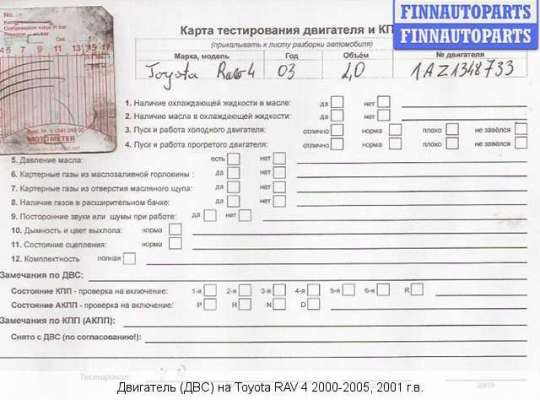 No.
FINNAUTOPARTS
FINNAUTOPARTS
Карта тестирования двигателя и КП
(прикалывать к листу разборки автомобиля)
Марка, модель Год Объём № двигателя
Toyota Rav 4 03 2,0 1AZ1348733
MOTOMETER
1. Наличие охлаждающей жидкости в масле: да нет
2. Наличие масла в охлаждающей жидкости: да нет
3. Пуск и работа холодного двигателя: отлично норма плохо не завёлся
4. Пуск и работа прогретого двигателя: отлично норма плохо не завёлся
5. Давление масла: есть нет
6. Картерные газы из маслозаливной горловины : да нет
7. Картерные газы из отверстия масляного щупа: да нет
8. Наличие газов в расширительном бачке: да нет
9. Посторонние звуки или шумы при работе: да нет
10. Дымность и цвет выхлопа: норма
11. Состояние сцепления: норма
12. Комплектность полная
Замечания по ДВС:
Состояние КПП - проверка на включение: 1-я 2-я 3-я 4-я 5-я я
Состояние АКПП - проверка на включение: P R N D
Замечания по КПП (АКПП):
Снято с ДВС (по согласованию!):
Двигатель (ДВС) на Toyota RAV 4 2000-2005, 2001 г.в.